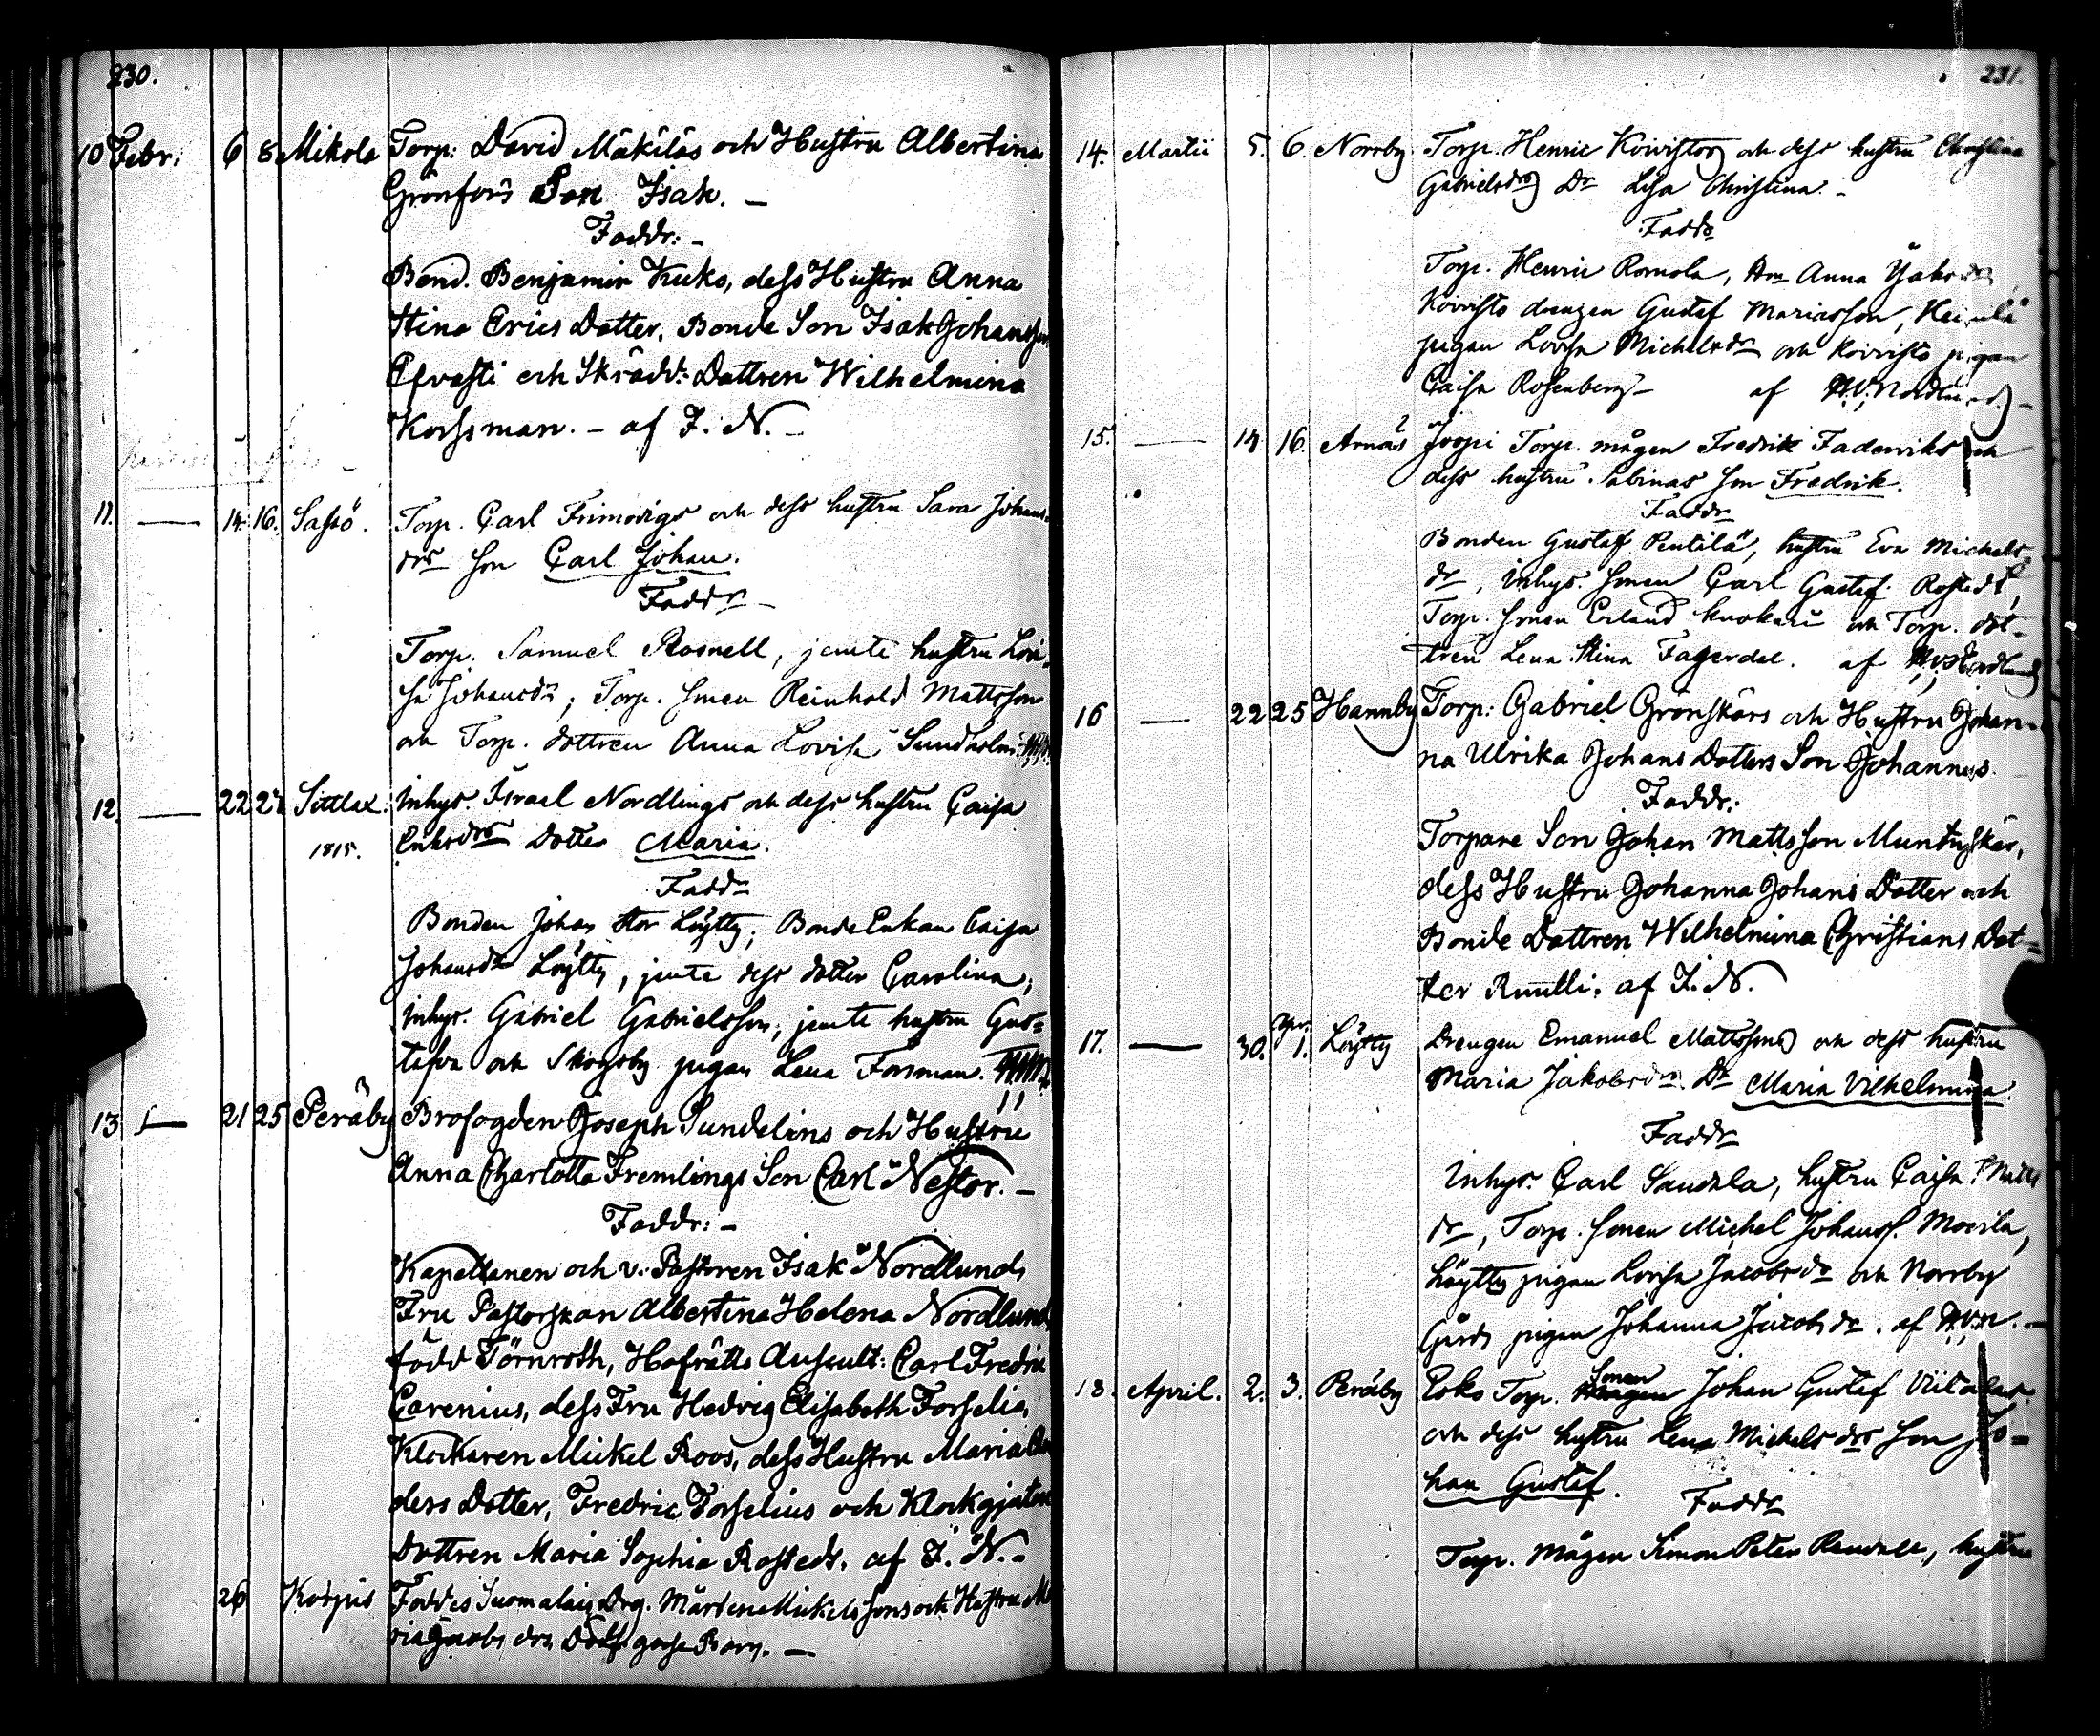 230.
10 Febr. 6 8 Mikola Torp: David Mäkiläs och Hustru Albertina
Grönfors Son Isak. –
Faddr: –
Bond. Benjamin Kuko, dess Hustru Anna
Stina Erics Dotter, Bonde Son Isak Johansson
och Skrädd: Dottren Wilhelmina
Korssman. – af I. N. –
11. — 14. 16. Sassö. Torp. Carl Frimodigs och dess hustru Sara Johans
drs son Carl Johan.
Faddr –
Torp. Samuel Rosnell, jemte hustru Lovi-
sa Johansdr, Torp. sonen Reinhold Mattsson
och Torp. dottren Anna Lovisa Sundholm.
12. — 22 27 Sittlax. Inhys. Israel Nordlings och dess hustru Caisa
1815. Eriksdrs Dotter Maria.
Faddr
Bonden Johan Stor Löytty, Bonde Enkan Caisa
Johansdr Löytty, jemte dess dotter Carolina,
Inhys. Gabriel Gabrielsson, jemte hustru Gus=
tafva och Skogsby pigan Lena Forsman.
13 — 21 25 Peräby Brofogden Joseph Sundelins och Hustru
Anna Charlotta Fremlings Son Carl Nestor. –
Faddr: –
Kapellanen och v. Pastoren Isak Nordlund,
Fru Pastorskan Albertina Helena Nordlund,
född Törnroth, Hofrätts Auscult: Carl Fredric
Carenius, dess Fru Hedvig Elisabeth Forselia,
Klockaren Mickel Roos, dess Hustru Maria An
ders Dotter, Fredric Forselius och Klockgjutare
Dottren Maria Sophia Rostedt. af I. N. –
26 Korpis Föddes Suomalais Drg. Mårten Mickelssons och Hustru Ma
ria Jacobs drs Dödf. gosse Barn. —
231.
14. Martii 5. 6. Norrby Torp. Henric Koivistos och dess hustru Christina
Gabrielsdrs Dr Lisa Christina. –
Faddr
Torp. Henric Romola, Hm Anna
Koivisto drengen Gustaf Mariasson,
pigan Lovisa Michelsdr och Koivisto pigan
Caisa Rosenberg – af N.v. Nordlund. –
15. — 14 16. Arnäs Joopi Torp. mågen Fredrik Faderviks och
dess hustru Sabinas son Fredrik.
Faddr
Bonden Gustaf Pentilä, hustru Eva Michels
dr, Inhys. sonen Carl Gustaf Rostedt,
Torp. sonen Erland Kuokari och Torp. dot-
tren Lena Stina Fagerdal. af
16 — 22 25 Hannby Torp: Gabriel Grönskärs och Hustru Johan-
na Ulrika Johans Dotters Son Johannes.
Faddr:
Torpare Son Johan Mattsson Muntuskär,
dess Hustru Johanna Johans Dotter och
Bonde Dottren Wilhelmina Christians Dot=
ter Ruutti. af I. N.
17. — 30. Apr. 1. Löytty Drengen Emanuel Mattssons och dess hustru
Maria Jakobsdrs Dr Maria Vilhelmina.
Faddr
Inhys. Carl Sandela, hustru Caisa Matts
dr, Torp. sonen Michel Johanss. Moisila,
Löytty pigan Lovisa Jacobsdr och Norrby
Gårds pigan Johanna Jacobsdr. af N.v.N. –
18. April. 2. 3. Peräby Esko Torp. Sonen Johan Gustaf Viitalas
och dess hustru Lena Michelsdrs son Jo=
han Gustaf.
Faddr
Torp. mågen Simon Peter Randell, hustru